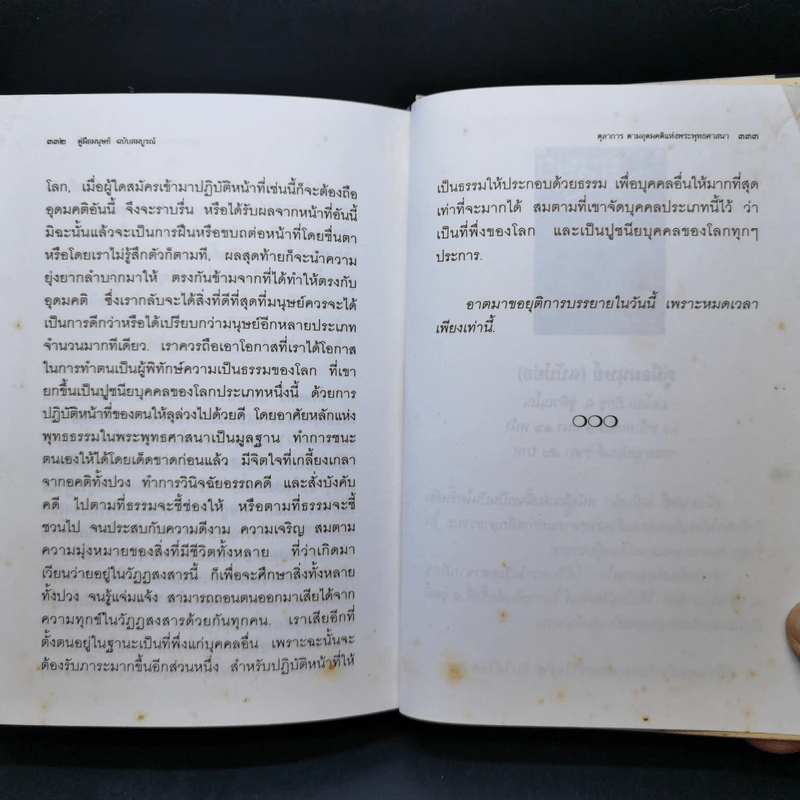 ๓๓๒ คู่มือมนุษย์ ฉบับสมบูรณ์
โลก, เมื่อผู้ใดสมัครเข้ามาปฏิบัติหน้าที่เช่นนี้ก็จะต้องถือ
อุดมคติอันนี้ จึงจะราบรื่น หรือได้รับผลจากหน้าที่อันนี้
มิฉะนั้นแล้วจะเป็นการฝืนหรือขบถต่อหน้าที่โดยชื่นตา
หรือโดยเราไม่รู้สึกตัวก็ตามที, ผลสุดท้ายก็จะนำความ
ยุ่งยากลำบากมาให้ ตรงกันข้ามจากที่ได้ทำให้ตรงกับ
อุดมคติ ซึ่งเรากลับจะได้สิ่งที่ดีที่สุดที่มนุษย์ควรจะได้
เป็นการดีกว่าหรือได้เปรียบกว่ามนุษย์อีกหลายประเภท
จำนวนมากทีเดียว. เราควรถือเอาโอกาสที่เราได้โอกาส
ในการทำตนเป็นผู้พิทักษ์ความเป็นธรรมของโลก ที่เขา
ยกขึ้นเป็นปูชนียบุคคลของโลกประเภทหนึ่งนี้ ด้วยการ
ปฏิบัติหน้าที่ของตนให้ลุล่วงไปด้วยดี โดยอาศัยหลักแห่ง
พุทธธรรมในพระพุทธศาสนาเป็นมูลฐาน ทำการชนะ
ตนเองให้ได้โดยเด็ดขาดก่อนแล้ว มีจิตใจที่เกลี้ยงเกลา
จากอคติทั้งปวง ทำการวินิจฉัยอรรถคดี และสั่งบังคับ
คดี ไปตามที่ธรรมจะชี้ช่องให้ หรือตามที่ธรรมจะชี้
ชวนไป จนประสบกับความดีงาม ความเจริญ สมตาม
ความมุ่งหมายของสิ่งที่มีชีวิตทั้งหลาย ที่ว่าเกิดมา
เวียนว่ายอยู่ในวัฏฏสงสารนี้ ก็เพื่อจะศึกษาสิ่งทั้งหลาย
ทั้งปวง จนรู้แจ่มแจ้ง สามารถถอนตนออกมาเสียได้จาก
ความทุกข์ในวัฏฏสงสารด้วยกันทุกคน. เราเสียอีกที่
ตั้งตนอยู่ในฐานะเป็นที่พึ่งแก่บุคคลอื่น เพราะฉะนั้นจะ
ต้องรับภาระมากขึ้นอีกส่วนหนึ่ง สำหรับปฏิบัติหน้าที่ให้
ตุลาการ ตามอุดมคติแห่งพระพุทธศาสนา ๓๓๓
เป็นธรรมให้ประกอบด้วยธรรม เพื่อบุคคลอื่นให้มากที่สุด
เท่าที่จะมากได้ สมตามที่เขาจัดบุคคลประเภทนี้ไว้ ว่า
เป็นที่พึ่งของโลก และเป็นปูชนียบุคคลของโลกทุกๆ
ประการ.
อาตมาขอยุติการบรรยายในวันนี้ เพราะหมดเวลา
เพียงเท่านี้.